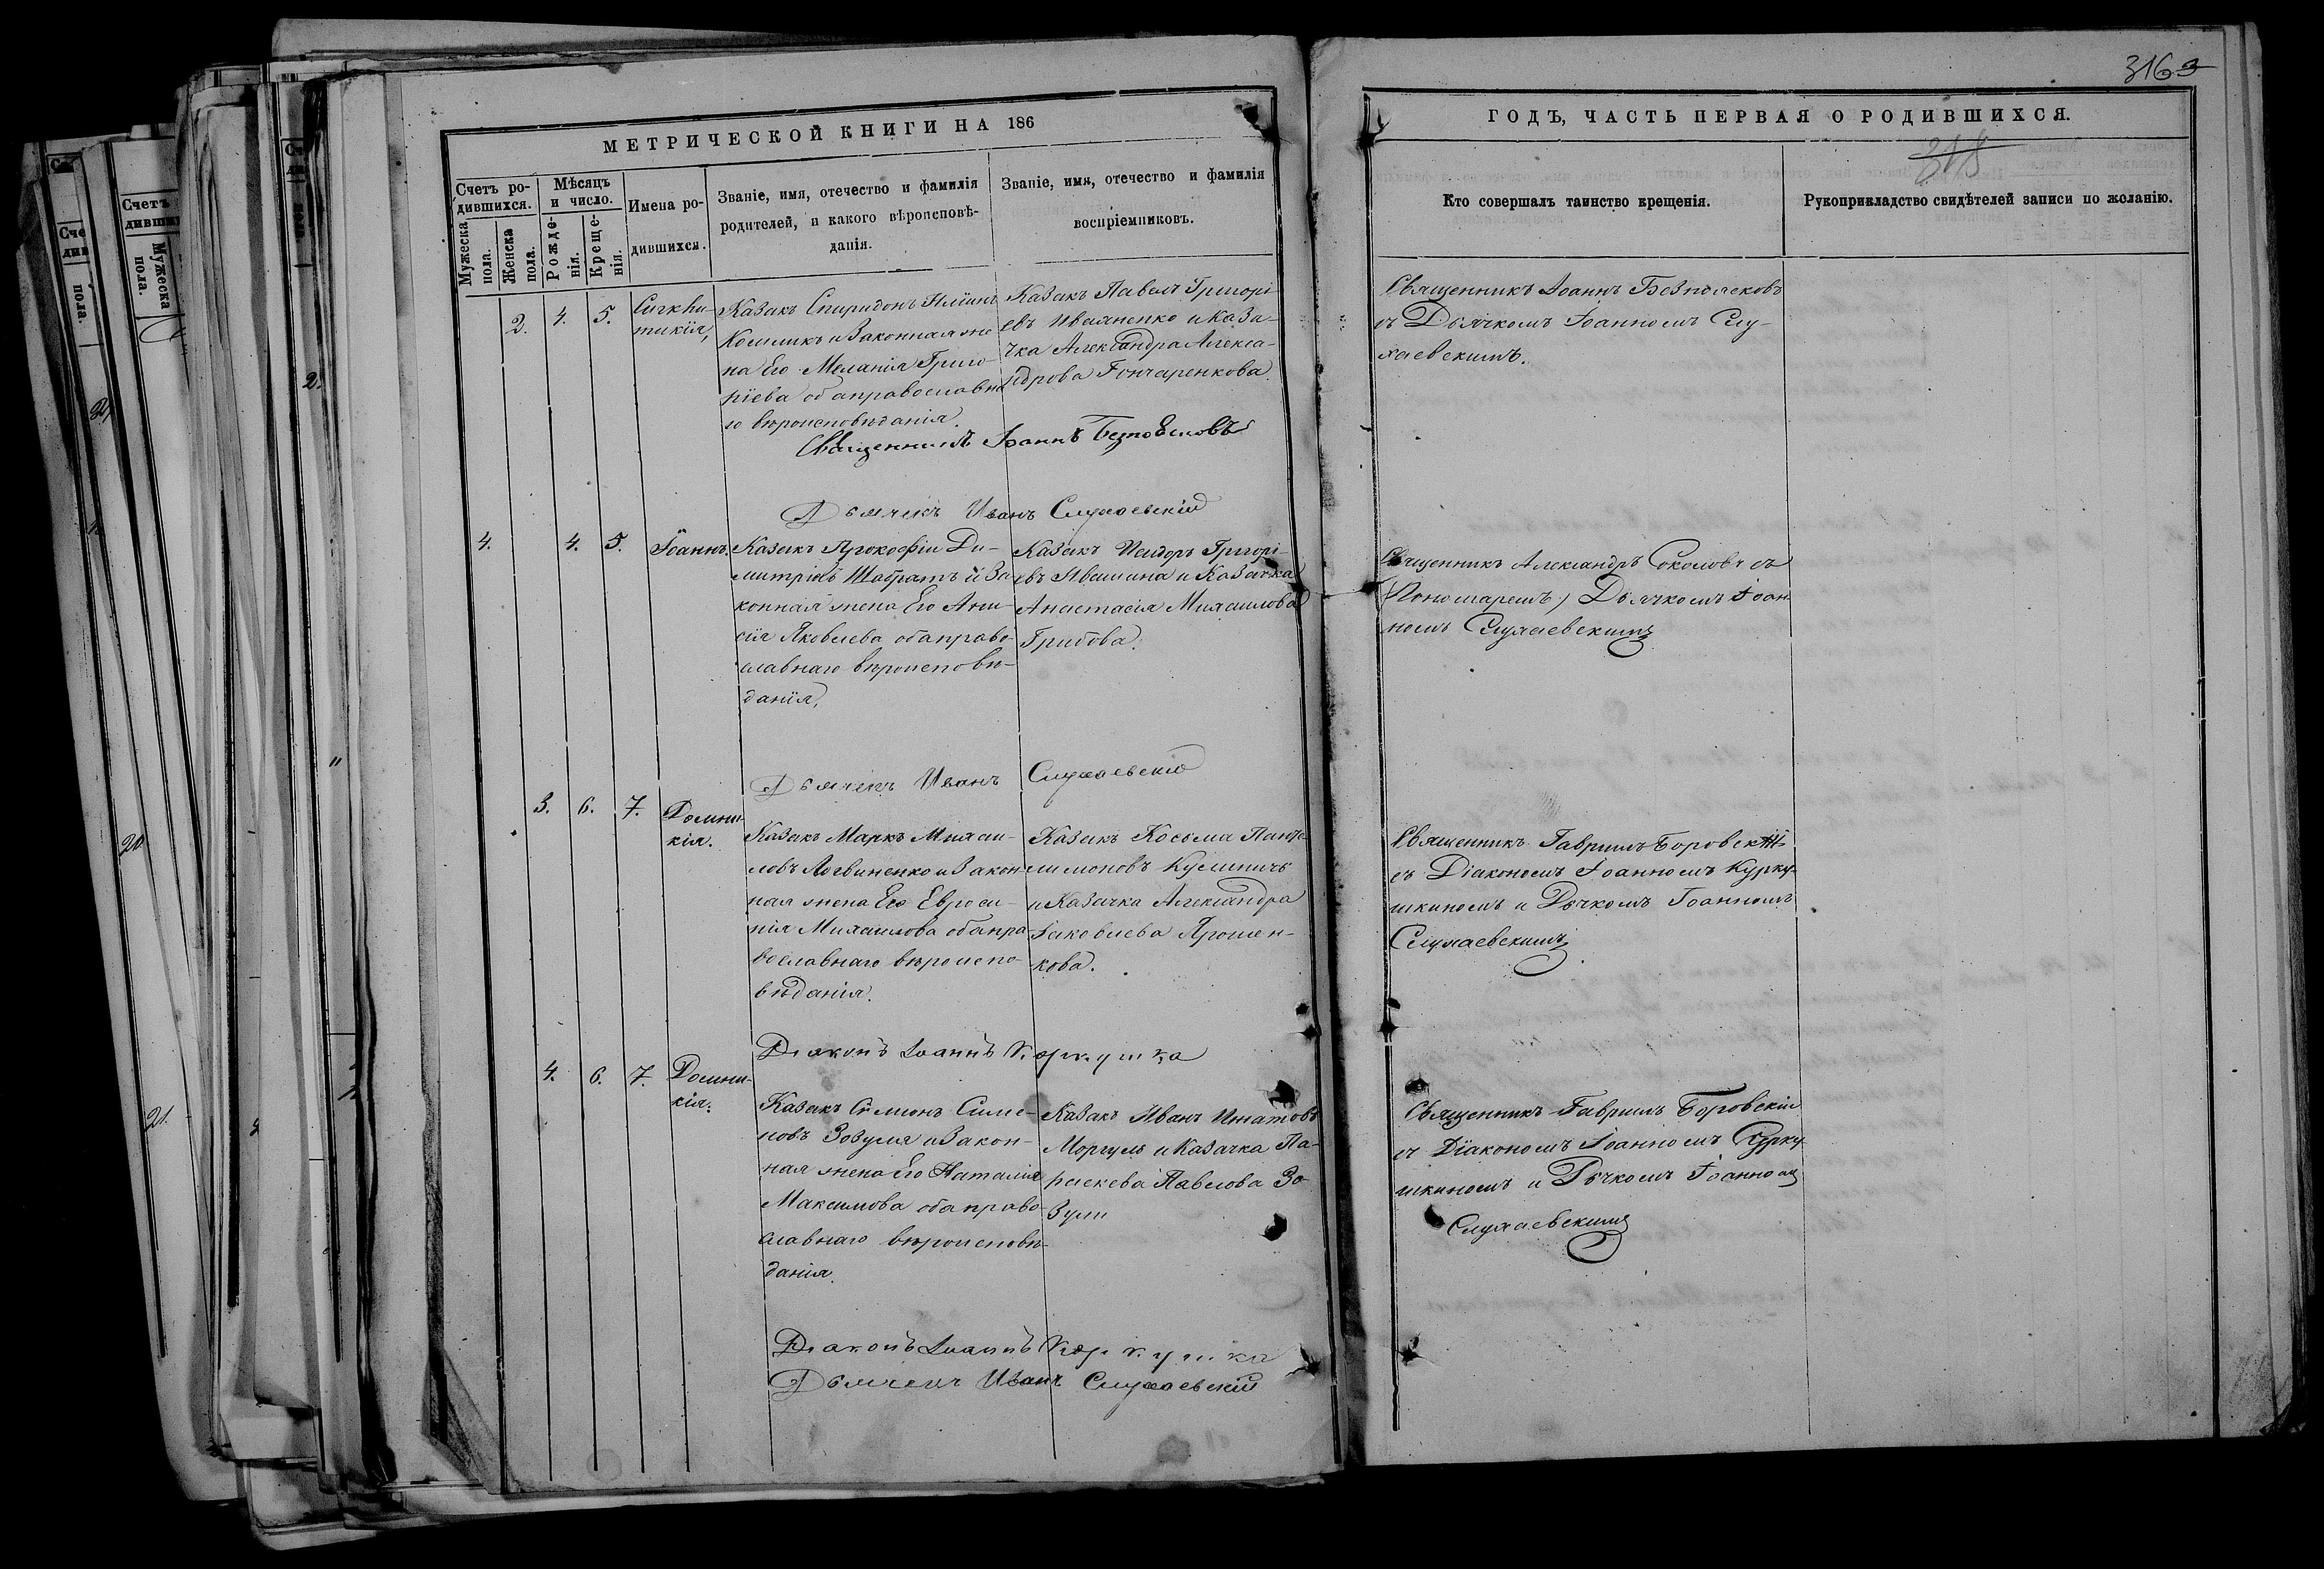 3163
МЕТРИЧЕСКОЙ КНИГИ НА 186
ГОДЪ, ЧАСТЬ ПЕРВАЯ О РОДИВШИХСЯ.
318
Счетъ ро-
дившихся.
Мужеска
пола.
Женска
пола.
Мѣсяцъ
и число.
Рожде-
нія.
Креще-
нія.
Имена ро-
дившихся.
Званіе, имя, отечество и фамилія
родителей, и какого вѣроисповѣ-
данія.
Званіе, имя, отечество и фамилія
воспріемниковъ.
Кто совершалъ таинство крещенія.
Рукоприкладство свидѣтелей записи по желанію.
2.
4.
5.
Синкли-
тикія,
Казакъ Спиридонъ
и Законная же
на Его Меланія Григо-
ріева оба православна
го вѣроисповѣданія.
Казакъ Павелъ Григорі
евъ и Каза-
чка Александра Алекса-
ндрова Гончаренкова.
Священникъ Іоаннъ Безполсковъ
съ Дьячкомъ Іоанномъ Слу-
хаевскимъ.
Священникъ Іоаннъ
Дьячекъ Иванъ Слухаевскій
4.
4.
5.
Іоаннъ.
Казакъ Прокофій Ди-
митріевъ Шабратъ и За
конная жена Его Ани-
сія Яковлева оба право-
славнаго вѣроисповѣ-
данія,
Казакъ Исидоръ Григорі-
евъ Ившина и Казачка
Анастасія Михаилова
Грибова.
Священникъ Александръ Соколовъ съ
(Пономаремъ) Дьячкомъ Іоан
номъ Слухаевскимъ
Дьячекъ Иванъ Слухаевскій
3.
6.
7.
Домни-
кія.
Казакъ Маркъ Михаи-
ловъ Логвиненко и Закон
ная жена Его Евроси-
нія Михаилова оба пра
вославнаго вѣроиспо-
вѣданія.
Казакъ Косьма Панте
лимоновъ Кулиничъ
и Казачка Александра
Іаковлева Ярошен-
кова.
Священникъ Гавріилъ Боровскій
съ Діакономъ Іоанномъ Курку-
шкиномъ и Дячкомъ Іоанномъ
Слухаевскимъ
Діаконъ Іоаннъ Коркушка
4.
6.
7.
Домни-
кія.
Казакъ Симионъ Симе-
новъ Зозуля и Закон-
ная жена Его Наталія
Максимова оба право-
славнаго вѣроисповѣ-
данія.
Казакъ Иванъ Игнатовъ
Моргуль и Казачка Па-
раскева Павлова Зо-
зули
Священникъ Гавріилъ Боровскій
съ Діакономъ Іоанномъ Курку-
шкиномъ и Дячкомъ Іоанномъ
Слухаевскимъ
Діаконъ Іоаннъ Коркушка
Дьячекъ Иванъ Слухаевскій